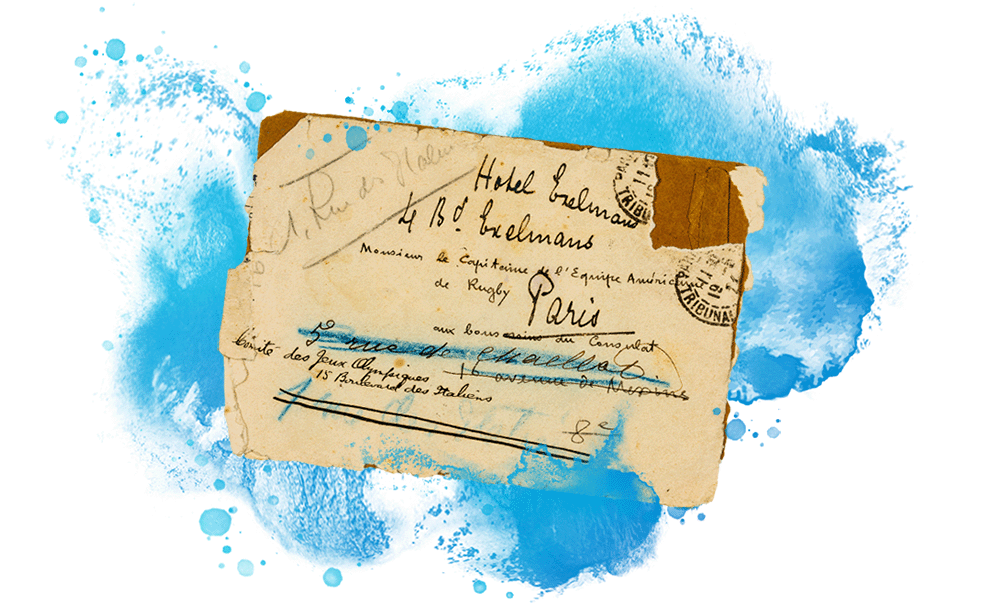 1, Rue des Italiens
Hotel Exelmans
4 Bd. Exelmans
Monsieur le Capitaine de l'Equipe Améric
de Rugby
Paris
aux bons soins du Consulat
5 rue de Chaillot
1 avenue de
Comité des Jeux Olympiques
15 Boulevard des Italiens
8e
PAR
TRIBU
PARI
TRIBUNA